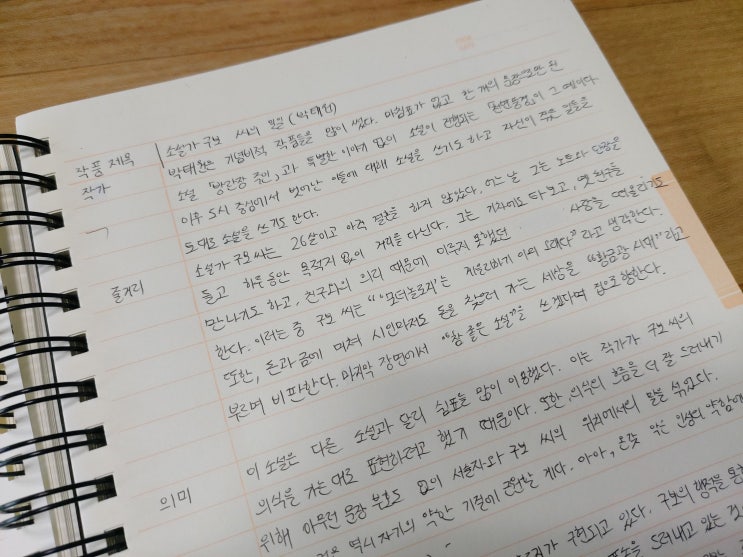 작품 제목
소설가 구보 씨의 일일 (박태원)
작가
박태원은 기념비적 작품들을 많이 썼다. 마침표가 없고 한 개의 문장으로만 된
소설 「방란장 주인」과 특별한 이야기 없이 소설이 진행되는 「천변풍경」이 그 예이다.
이후 도시 중심에서 벗어난 이들에 대해 소설을 쓰기도 하고 자신이 겪은 일들을
토대로 소설을 쓰기도 한다.
줄거리
소설가 구보 씨는 26살이고 아직 결혼을 하지 않았다. 어느 날 그는 노트와 단장을
들고 하루 동안 목적지 없이 거리를 다닌다. 그는 기차에도 타보고, 옛 친구를
만나기도 하고, 친구와의 의리 때문에 이루지 못했던 사랑을 떠올리기도
한다. 이러는 중 구보 씨는 "'모더놀로지'는 게을리하기 이미 오래다"라고 생각한다.
또한, 돈과 금에 미쳐 시인마저도 돈을 찾으러 가는 세상을 "황금광 시대"라고
부르며 비판한다. 마지막 장면에서 "참 좋은 소설"을 쓰겠다며 집으로 향한다.
의미
이 소설은 다른 소설과 달리 쉼표를 많이 이용했다. 이는 작가가 구보 씨의
의식을 가는 대로 표현하려고 했기 때문이다. 또한, 의식의 흐름을 더 잘 드러내기
위해 아무런 문장 부호도 없이 서술자와 구보 씨의 위치에서의 말을 섞었다.
역시 자기의 약한 기질에 근원할 게다. 아아, 온갖 악은 인성의 약함에
구현되고 있다. 구보의 행적을 통
드러내고 있는 것